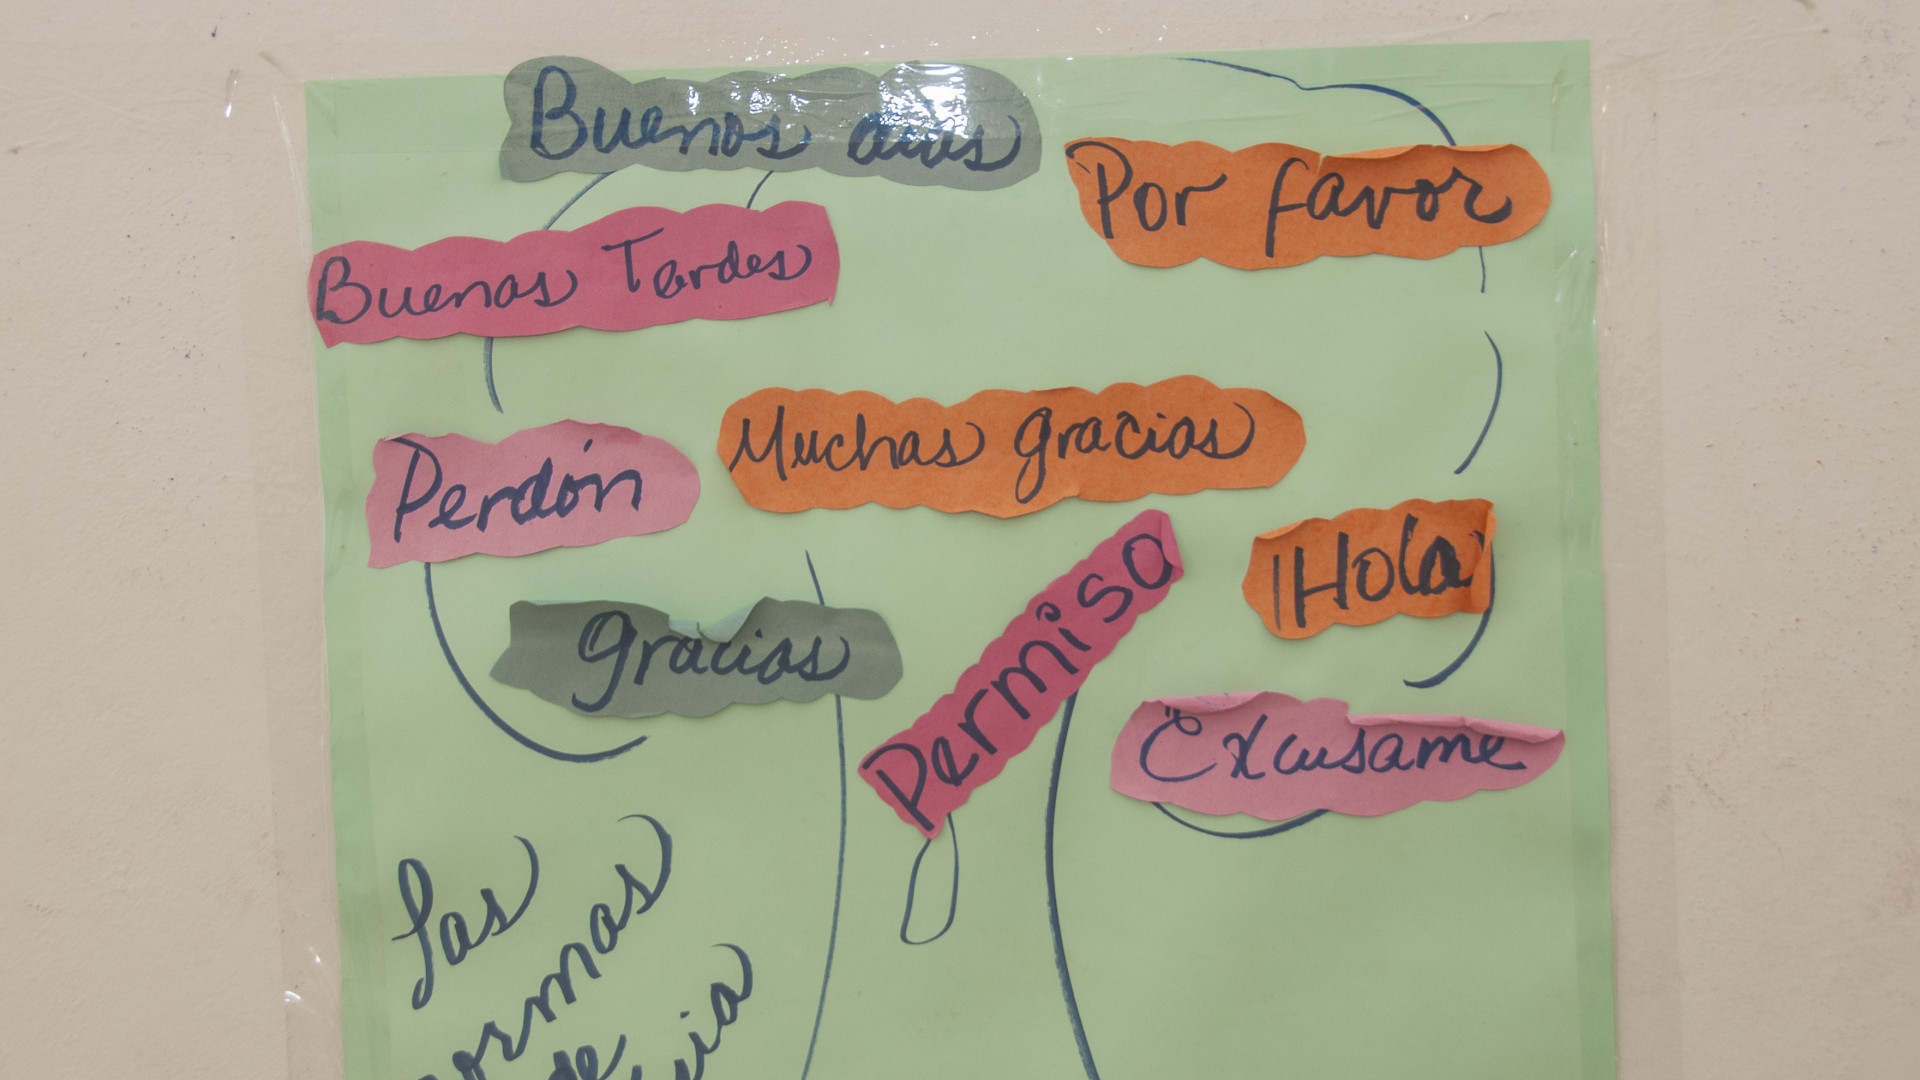 Buenos días
Por favor
Buenas Tardes
Muchas gracias
Perdón
¡Hola
Permiso
gracias
Excusame
Las
ormas
de